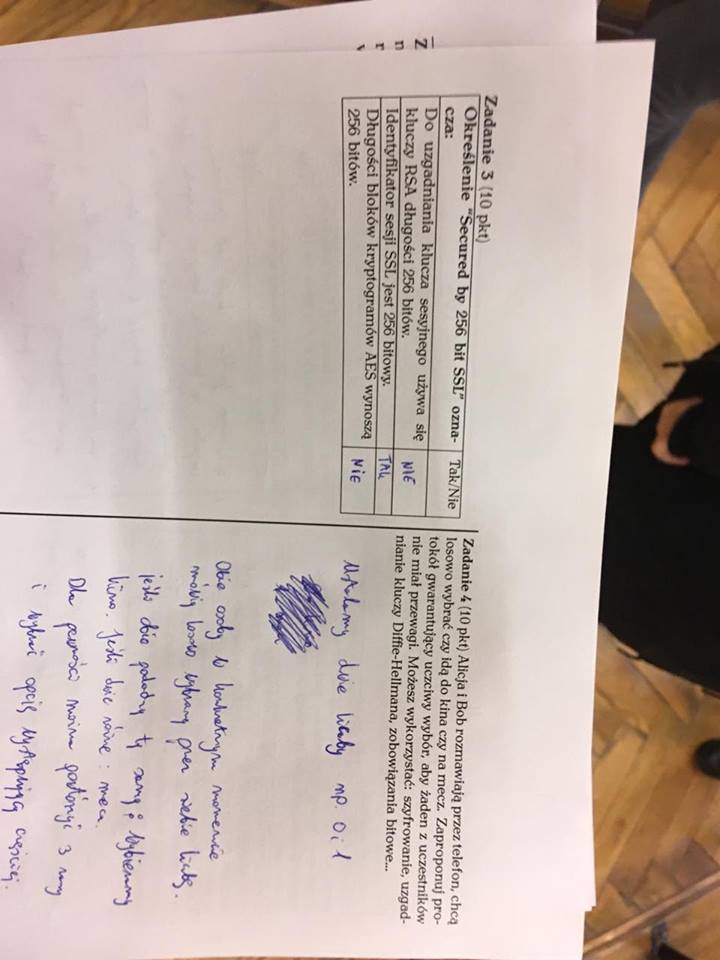 Zadanie 3 (10 pkt)
Określenie "Secured by 256 bit SSL" ozna-
cza:
Tak/Nie
Do uzgadniania klucza sesyjnego używa się
kluczy RSA długości 256 bitów.
NIE
Identyfikator sesji SSL jest 256 bitowy.
TAK
Długości bloków kryptogramów AES wynoszą
256 bitów.
NIE
Zadanie 4 (10 pkt) Alicja i Bob rozmawiają przez telefon, chcą
losowo wybrać czy idą do kina czy na mecz. Zaproponuj pro-
tokół gwarantujący uczciwy wybór, aby żaden z uczestników
nie miał przewagi. Możesz wykorzystać: szyfrowanie, uzgad-
nianie kluczy Diffie-Hellmana, zobowiązania bitowe...
Ustalamy dwie liczby np. 0 i 1
Obie osoby w konkretnym momencie
mówią losowo wybraną przez siebie liczbę.
jeśli obie podadzą tą samą : wybieramy
kino. Jeśli dwie różne : mecz.
Dla pewności można powtórzyć 3 razy
i wybrać opcję występującą częściej.